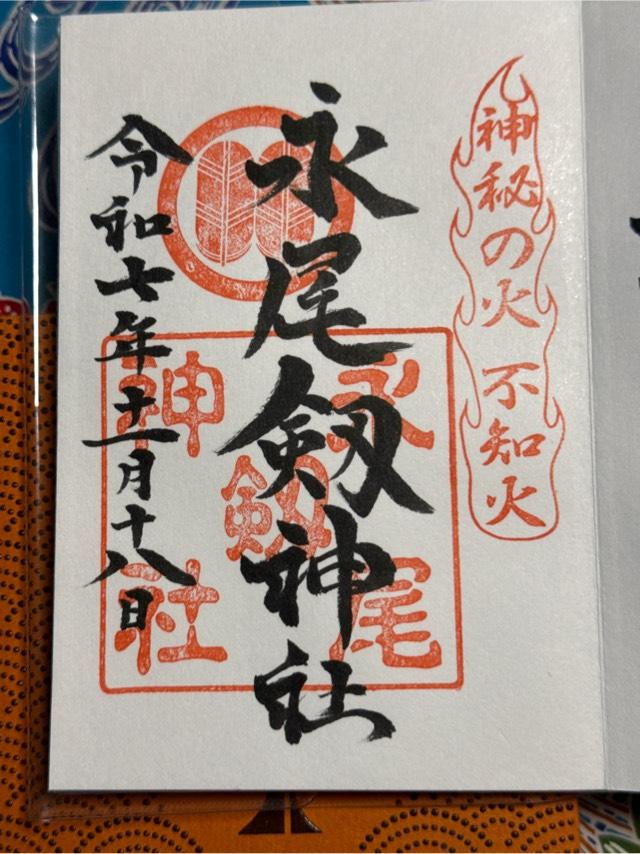 神秘の火 不知火
永尾剱神社
永尾
剱
神社
令和七年十一月十八日